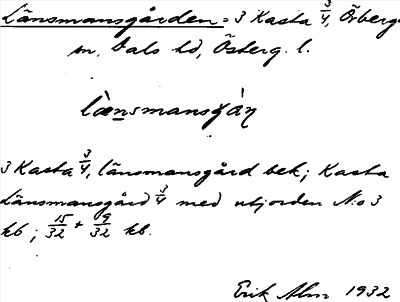 Länsmansgården = 3 Kasta 3/4, Örberga
sn, Dals hd, Österg. l.
lὰnsmansgάṇ
3 Kasta 3/4, länsmansgård bek; Kasta
Länsmansgård 3/4 med utjorden N:o 3
kb; 15/32 + 9/32 kb.
Erik Alm 1932